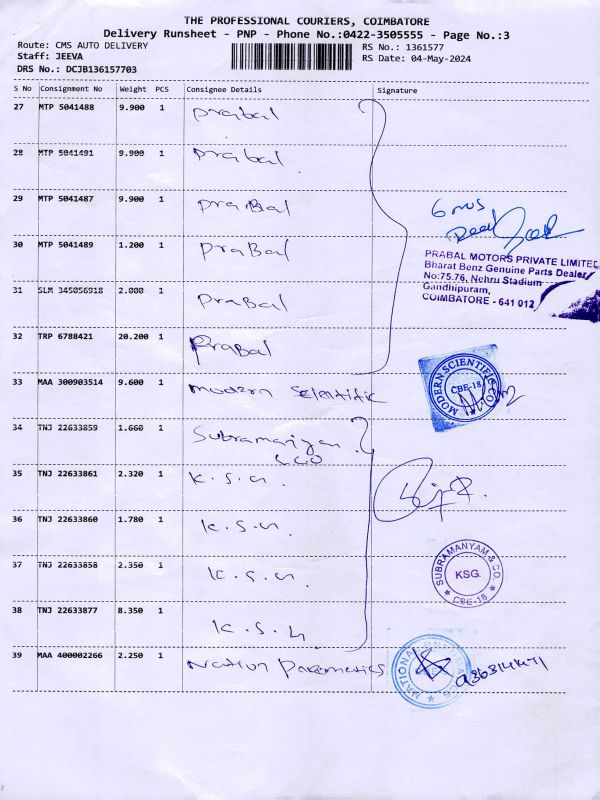 THE PROFESSIONAL COURIERS, COIMBATORE
Delivery Runsheet - PNP - Phone No.:0422-3505555 - Page No.:3
Route: CMS AUTO DELIVERY
RS No.: 1361577
Staff: JEEVA
RS Date: 04-May-2024
DRS No.: DCJB136157703
S No Consignment No Weight PCS Consignee Details Signature
27 MTP 5041488 9.900 1 prabal
28 MTP 5041491 9.900 1 prabal
29 MTP 5041487 9.900 1 praBal
6 nos
30 MTP 5041489 1.200 1 praBal
PRABAL MOTORS PRIVATE LIMITED
Bharat Benz Genuine Parts Dealer
No:75.76, Nehru Stadium
Gandhipuram,
COIMBATORE - 641 012
31 SLM 345056918 2.000 1 praBal
32 TRP 6788421 20.200 1 PraBal
33 MAA 300903514 9.600 1 modern Scientific
MODERN SCIENTIFIC CO.
CBE-18
34 TNJ 22633859 1.660 1 Subramaniyan
35 TNJ 22633861 2.320 1 K.S.G.
36 TNJ 22633860 1.780 1 K.S.G.
37 TNJ 22633858 2.350 1 K.S.G.
SUBRAMANYAM & CO.
KSG.
★ CBE-18 ★
38 TNJ 22633877 8.350 1 K.S.G.
39 MAA 400002266 2.250 1
NATIONAL